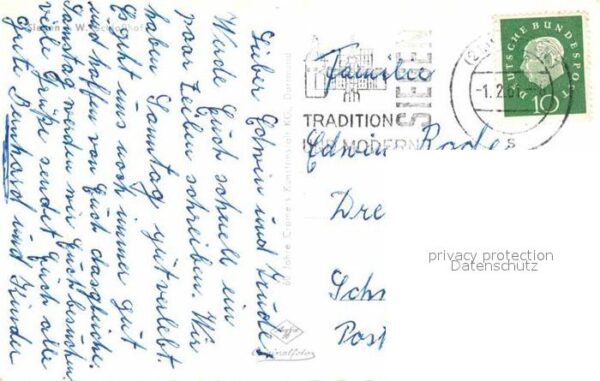 Lieber Edwin und Kinder
Werde Euch schnell ein
paar Zeilen schreiben. Wir
haben Sonntag gut verlebt.
Es geht uns noch immer gut
und hoffen von Euch dasgleiche.
Samstag werden wir Euch besuchen.
viele Grüße sendet Euch alle
Grete Bernhard und Kinder
60 Jahre Cramers Kunstanstalt KG, Dortmund
Originalfoto
TRADITION
MODERN
SIEGEN
-1.2.6
DEUTSCHE BUNDESPOST
10
Familie
Edwin
Dre
Sch
Post
privacy protection
Datenschutz